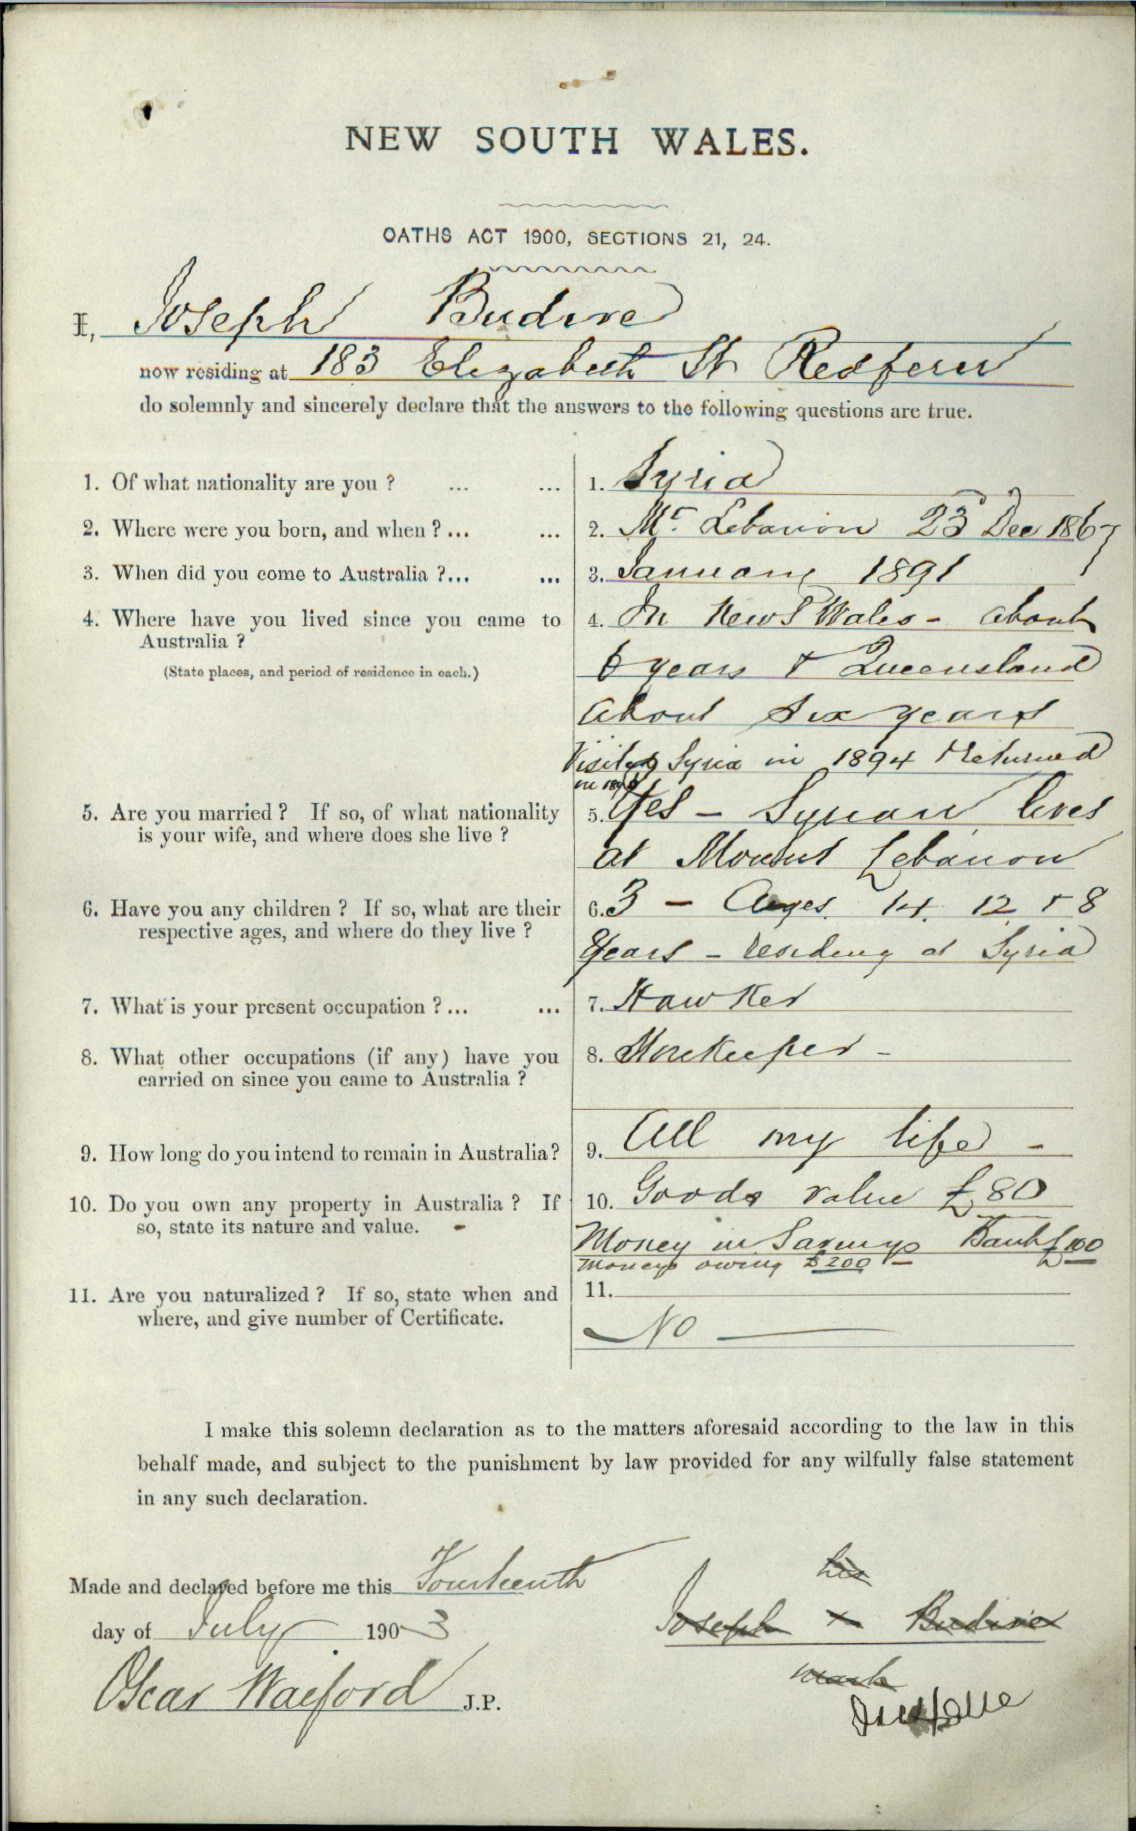 NEW SOUTH WALES.
OATHS ACT 1900, SECTIONS 21, 24.
I, Joseph Budire
now residing at 183 Elizabeth St Redfern
do solemnly and sincerely declare that the answers to the following questions are true.
1. Of what nationality are you ? ... ... 1. Syria
2. Where were you born, and when ? ... ... 2. Mt Lebanon 23 Dec 1867
3. When did you come to Australia ?... ... 3. January 1891
4. Where have you lived since you came to 4. In New S Wales - about
Australia ?
(State places, and period of residence in each.) 6 years & Queensland
about six years
Visited Syria in 1894 & returned
in
5. Are you married ? If so, of what nationality 5. Yes - Syrian lives
is your wife, and where does she live ?
at Mount Lebanon
6. Have you any children ? If so, what are their 6. 3 - Ages. 14. 12 & 8
respective ages, and where do they live ?
years - residing at Syria
7. What is your present occupation ? ... ... 7. Hawker
8. What other occupations (if any) have you 8. Storekeeper -
carried on since you came to Australia ?
9. How long do you intend to remain in Australia? 9. All my life -
10. Do you own any property in Australia ? If 10. Goods value £80
so, state its nature and value. -
Money in Savings Bank £100
Moneys owing £200 -
11. Are you naturalized ? If so, state when and 11.
where, and give number of Certificate.
No
I make this solemn declaration as to the matters aforesaid according to the law in this
behalf made, and subject to the punishment by law provided for any wilfully false statement
in any such declaration.
Made and declared before me this Fourteenth
day of July 1903
his
Joseph x Budire
mark
Oscar J.P.